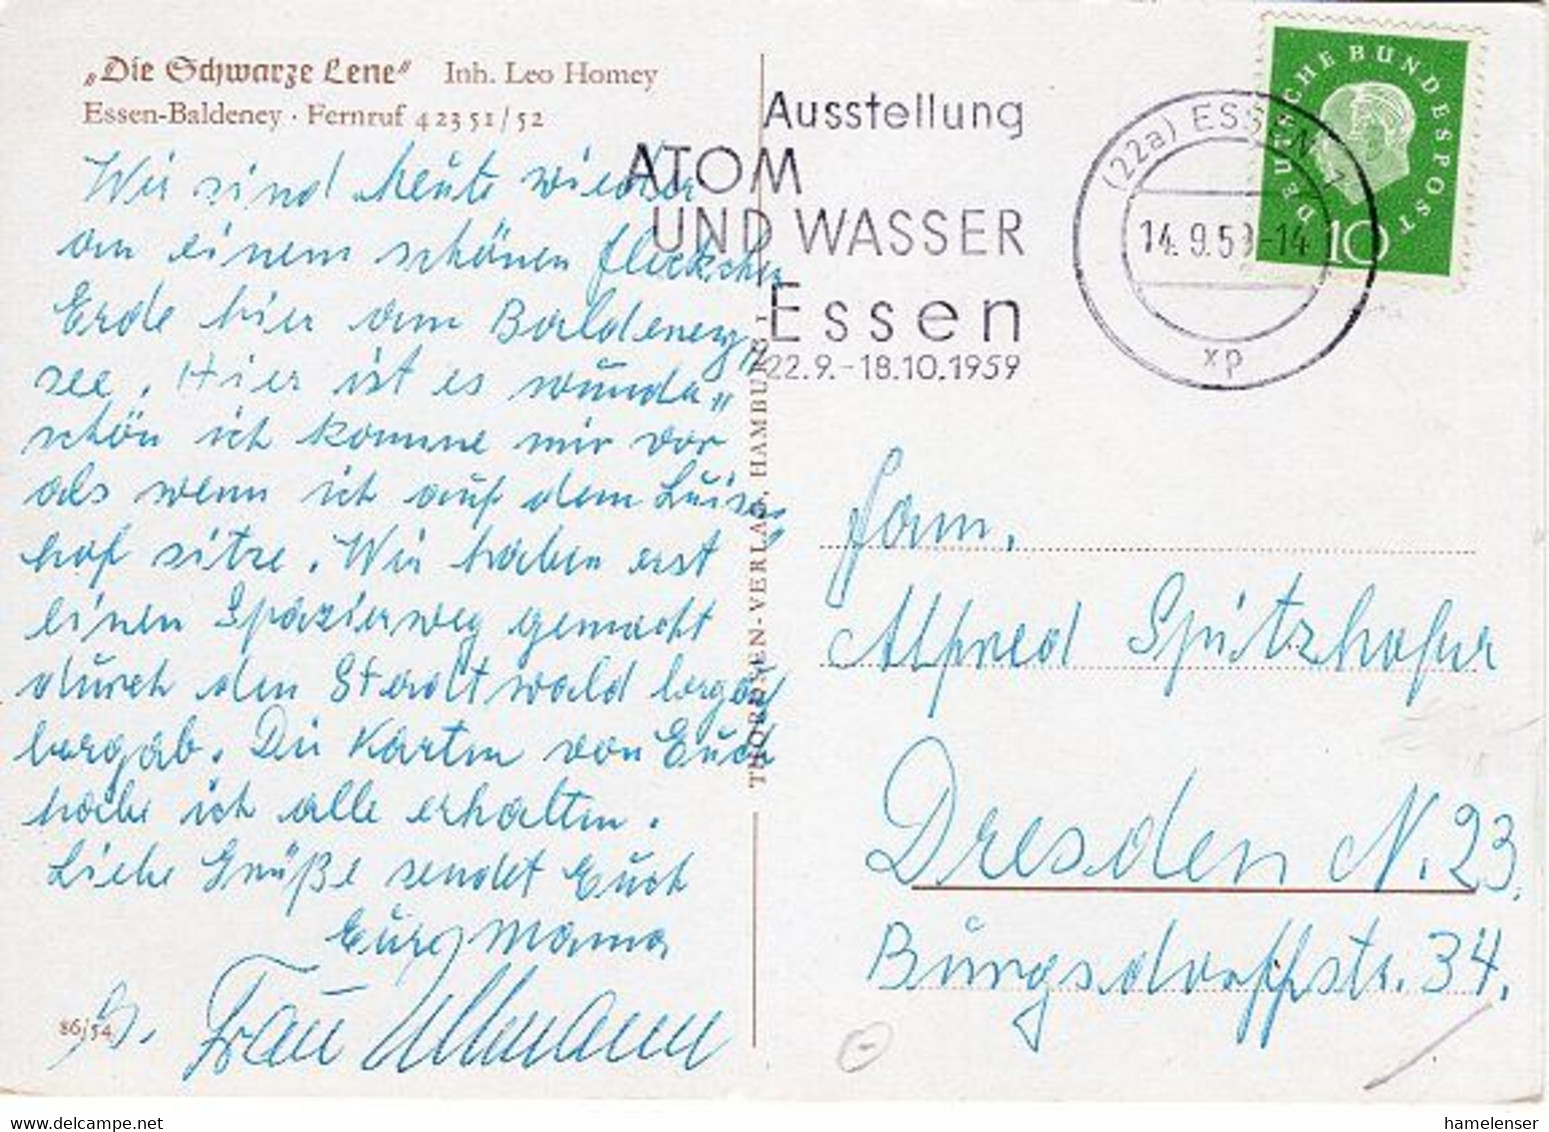 „Die Schwarze Lene" Inh. Leo Homey
Essen-Baldeney · Fernruf 4 23 51/52
Wir sind heute wieder
an einem schönen fleckchen
Erde hier am Baldeney-
see. Hier ist es wunda„
schön ich komme mir vor
als wenn ich auf dem Luisen
hof sitze. Wir haben erst
einen Spazierweg gemacht
durch den Stadtwald bergauf
bergab. Die Karten von Euch
habe ich alle erhalten.
Liebe Grüße sendet Euch
Eure Mama
Frau Ullmann
86/54
THORDSEN-VERLAG, HAMBURG 1
Ausstellung
ATOM
UND WASSER
Essen
22.9.-18.10.1959
(22a) ESSEN 1
14.9.59-14
xp
DEUTSCHE BUNDESPOST
10
Fam.
Alfred Spitzhofer
Dresden N. 23.
Burgsdorffstr. 34.
hamelenser